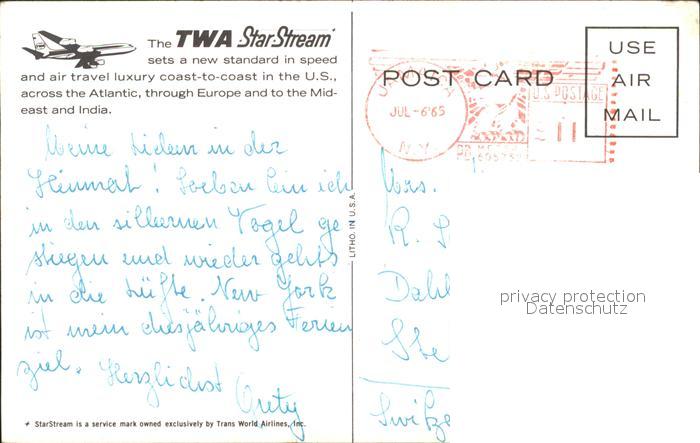 The TWA StarStream
sets a new standard in speed
and air travel luxury coast-to-coast in the U.S.,
across the Atlantic, through Europe and to the Mid-
east and India.
Meine Lieben in der
Heimat! Soeben bin ich
in den silbernen Vogel ge
stiegen und wieder gehts
in die Lüfte. New York
ist mein diesjähriges Ferien
ziel. Herzlichst
* StarStream is a service mark owned exclusively by Trans World Airlines, Inc.
LITHO. IN U.S.A.
POST CARD
USE
AIR
MAIL
JUL -6'65
N.Y.
U.S. POSTAGE
11
Mrs.
R.
Dahl
Ste
privacy protection
Datenschutz